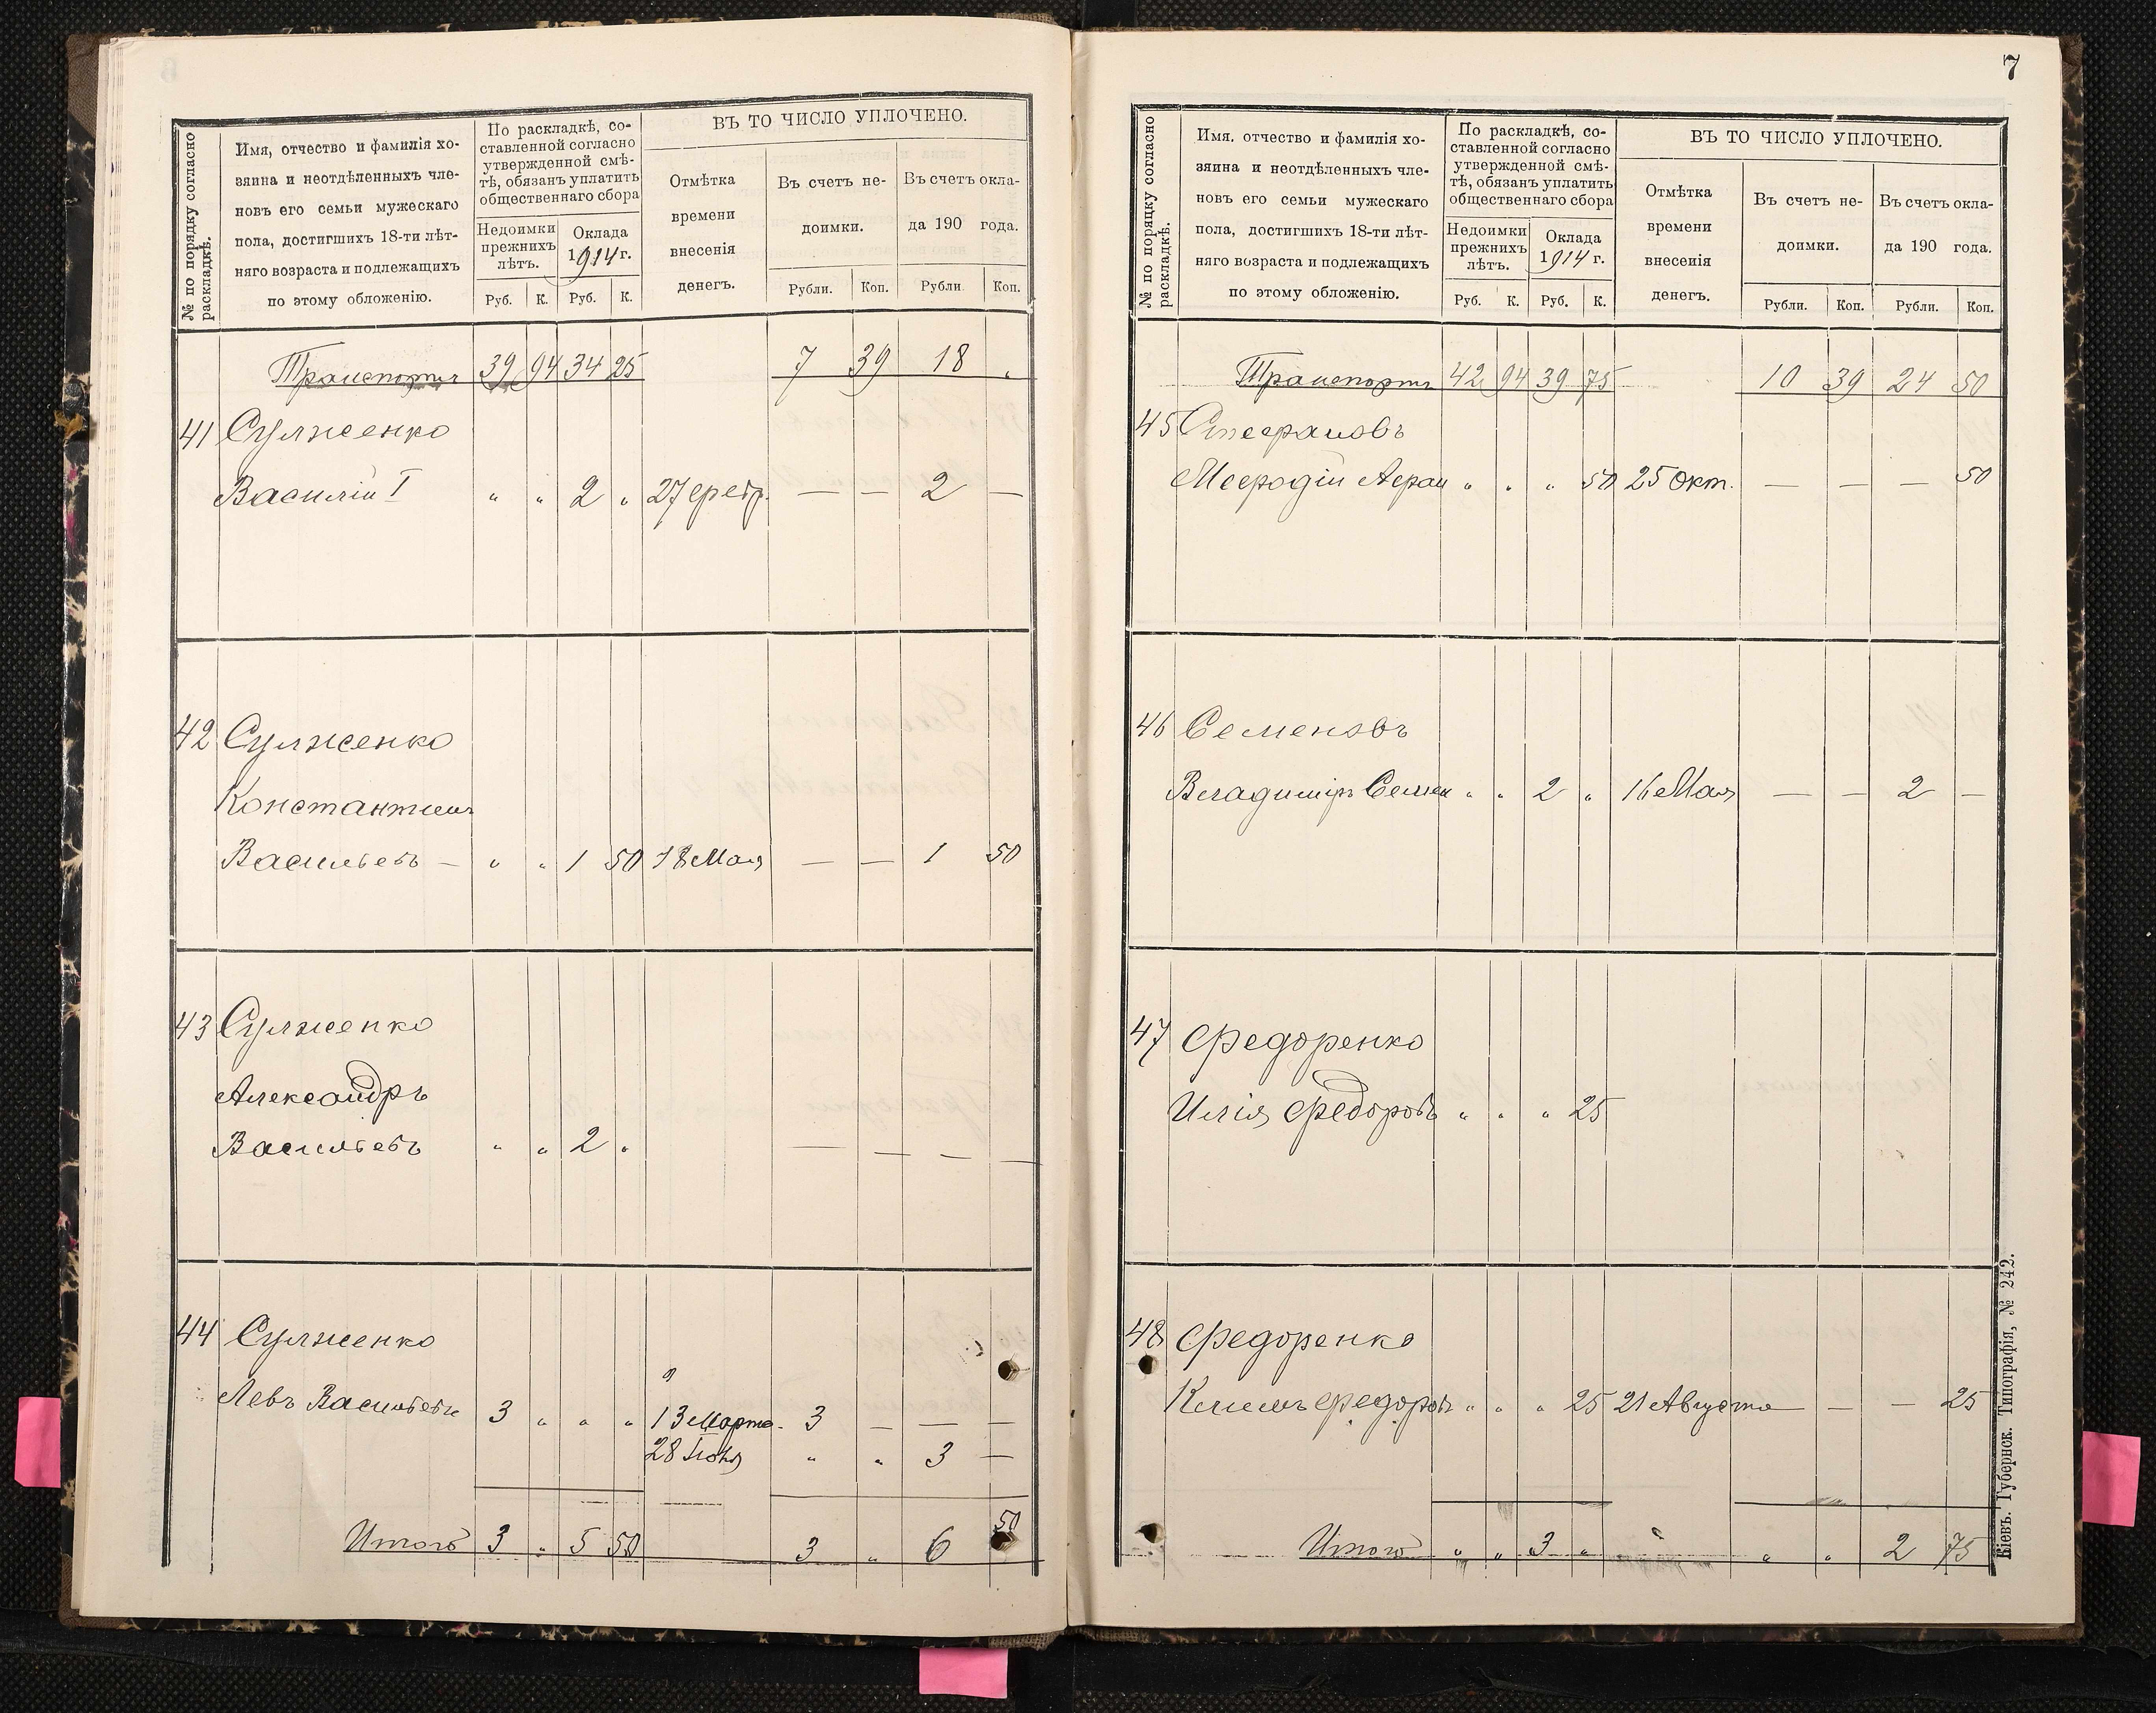 № по порядку согласно раскладкѣ.
Имя, отчество и фамилія хо-
зяина и неотдѣленныхъ чле-
новъ его семьи мужескаго
пола, достигшихъ 18-ти лѣт-
няго возраста и подлежащихъ
по этому обложенію.
По раскладкѣ, со-
ставленной согласно
утвержденной смѣ-
тѣ, обязанъ уплатить
общественнаго сбора
Недоимки
прежнихъ
лѣтъ.
Оклада
1914 г.
Руб. К. Руб. К.
ВЪ ТО ЧИСЛО УПЛОЧЕНО.
Отмѣтка
времени
внесенія
денегъ.
Въ счетъ не-
доимки.
Въ счетъ окла-
да 190 года.
Рубли. Коп. Рубли. Коп.
Транспортъ 39 94 34 25 7 39 18 "
41 Сулженко
Василій I " " 2 " 27 февр. — — 2 —
42 Сулженко
Константинъ
Васильевъ — " " 1 50 18 Мая — — 1 50
43 Сулженко
Александръ
Васильевъ " " 2 " — — — —
44 Сулженко
Левъ Васильевъ 3 " " " 13 Марта 3 — — —
28 Іюня " " 3 —
Итого 3 " 5 50 3 " 6 50
7
№ по порядку согласно раскладкѣ.
Имя, отчество и фамилія хо-
зяина и неотдѣленныхъ чле-
новъ его семьи мужескаго
пола, достигшихъ 18-ти лѣт-
няго возраста и подлежащихъ
по этому обложенію.
По раскладкѣ, со-
ставленной согласно
утвержденной смѣ-
тѣ, обязанъ уплатить
общественнаго сбора
Недоимки
прежнихъ
лѣтъ.
Оклада
1914 г.
Руб. К. Руб. К.
ВЪ ТО ЧИСЛО УПЛОЧЕНО.
Отмѣтка
времени
внесенія
денегъ.
Въ счетъ не-
доимки.
Въ счетъ окла-
да 190 года.
Рубли. Коп. Рубли. Коп.
Транспортъ 42 94 39 75 10 39 24 50
45 Стефановъ
Мефодій " " " 50 25 Окт. — — — 50
46 Семеновъ
Владиміръ Семен " " 2 " 16 Мая — — 2 —
47 Федоренко
Илія Федоровъ " " " 25
48 Федоренко
Климъ Федоровъ " " " 25 21 Августа — — — 25
Итого " " 3 " " " 2 75
Кіевъ. Губернск. Типографія, № 242.